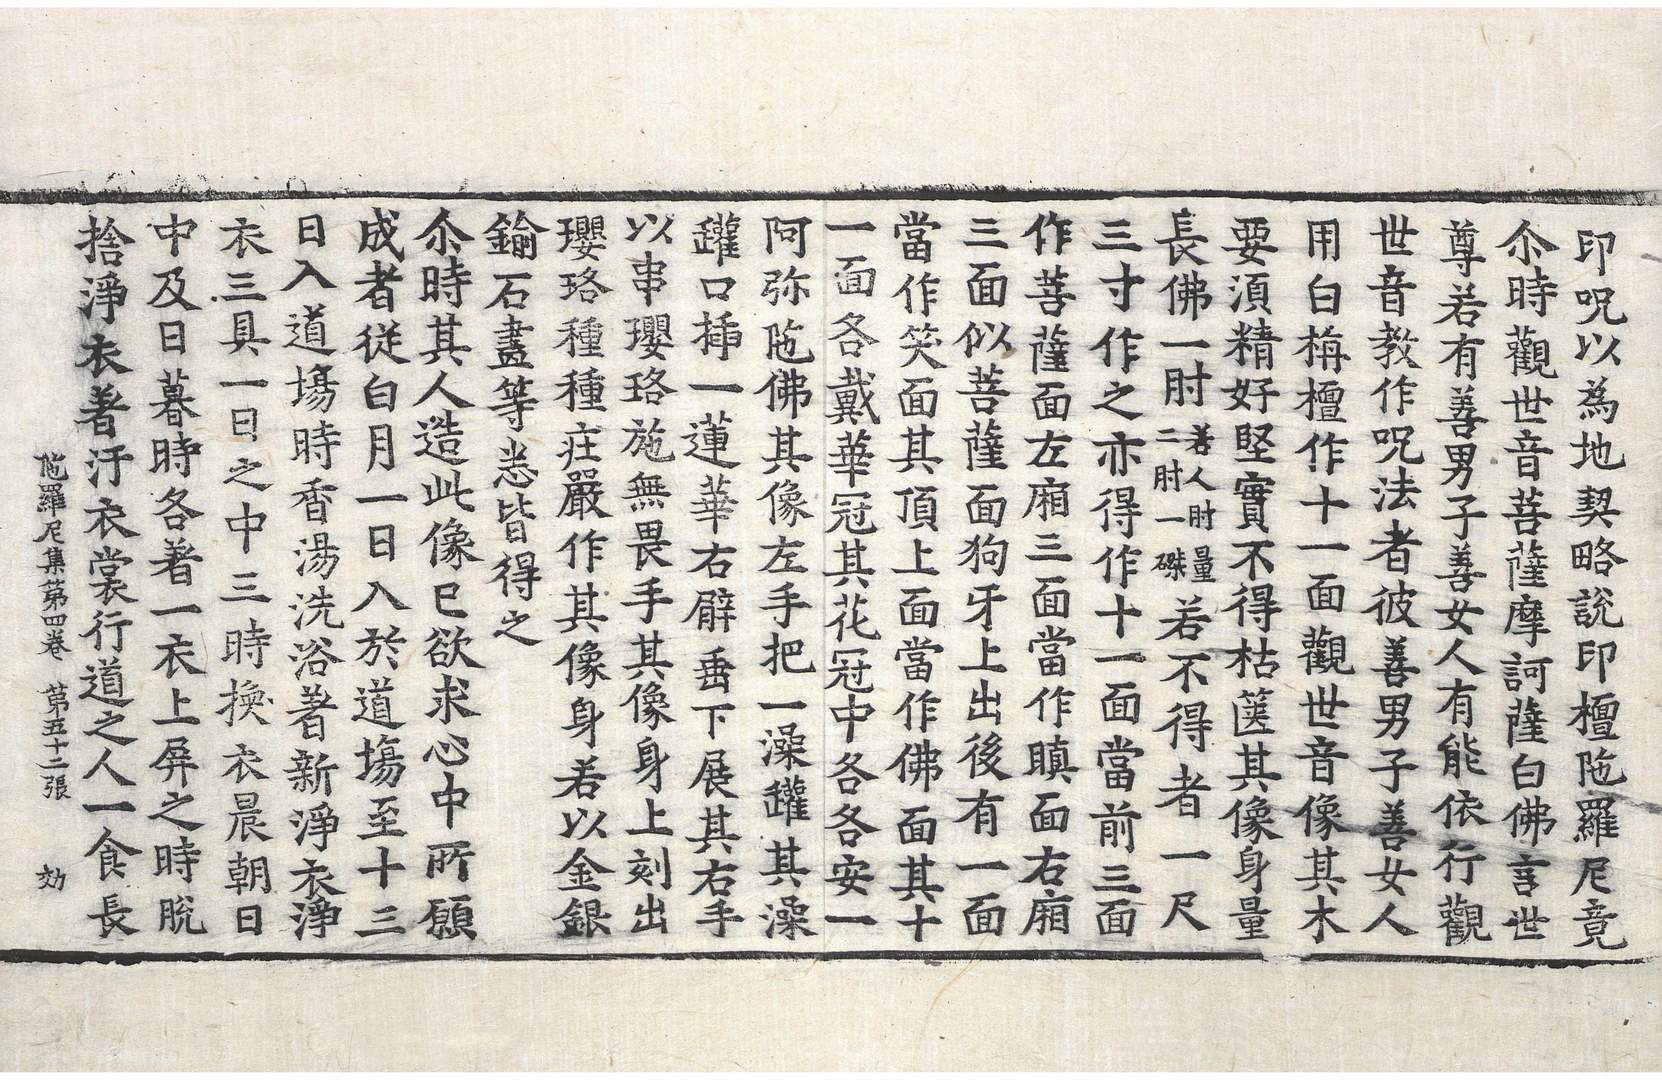 印呪以為地契略説印檀陁羅尼竟
尒時觀世音菩薩摩訶薩白佛言世
尊若有善男子善女人有能依行觀
世音教作呪法者彼善男子善女人
用白栴檀作十一面觀世音像其木
要湏精好堅實不得枯篋其像身量
長佛一肘若人肘量二肘一磔若不得者一尺
三寸作之亦得作十一面當前三面
作菩薩面左廂三面當作瞋面右廂
三面似菩薩面狗牙上出後有一面
當作笑面其頂上面當作佛面其十
一面各戴華冠其花冠中各各安一
阿弥陁佛其像左手把一澡罐其澡
罐口揷一蓮華右臂垂下展其右手
以串瓔珞施無畏手其像身上刻出
瓔珞種種莊嚴作其像身若以金銀
鍮石盡等悉皆得之
尒時其人造此像已欲求心中所願
成者從白月一日入於道場至十三
日入道場時香湯洗浴著新淨衣淨
衣三具一日之中三時換衣晨朝日
中及日暮時各著一衣上屏之時脫
捨淨衣著汙衣裳行道之人一食長
陁羅尼集第四卷 第五十二張 効